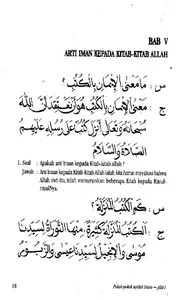 BAB V
ARTI IMAN KEPADA KITAB-KITAB ALLAH
س : مَا مَعْنَى الْإِيْمَانِ بِالْكُتُبِ؟
ج : مَعْنَى الْإِيْمَانِ بِالْكُتُبِ هُوَ أَنْ يَعْتَقِدَ أَنَّ اللّٰهَ
سُبْحَانَهُ وَتَعَالَى أَنْزَلَ كُتُبًا عَلَى رُسُلِهِ عَلَيْهِمُ
الصَّلَاةُ وَالسَّلَامُ
1. Soal : Apakah arti Iman kepada Kitab-kitab Allah ?
Jawab : Arti Iman kepada Kitab-kitab Allah ialah kita harus meyakini bahwa
Allah swt itu, telah menurunkan beberapa Kitab kepada Rasul-
rasulNya.
س : كَمِ الْكُتُبُ الْمُنَزَّلَةُ؟
ج : الْكُتُبُ الْمُنَزَّلَةُ كَثِيْرَةٌ، مِنْهَا التَّوْرَاةُ لِسَيِّدِنَا
مُوْسَى وَالْإِنْجِيْلُ لِسَيِّدِنَا عِيْسَى وَالزَّبُوْرُ
18
Pokok-pokok aqidah Islam — jilid I